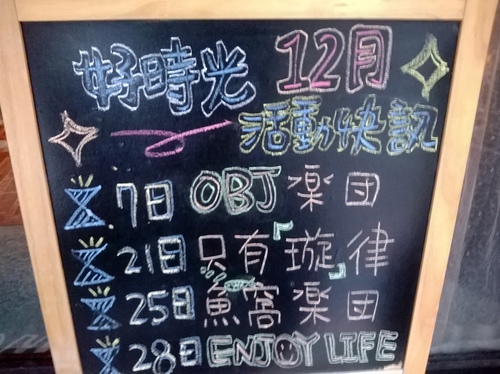 好時光 12月
活動快訊
7日 OBJ 楽団
21日 只有「璇」律
25日 魚窩楽団
28日 ENJOY LIFE